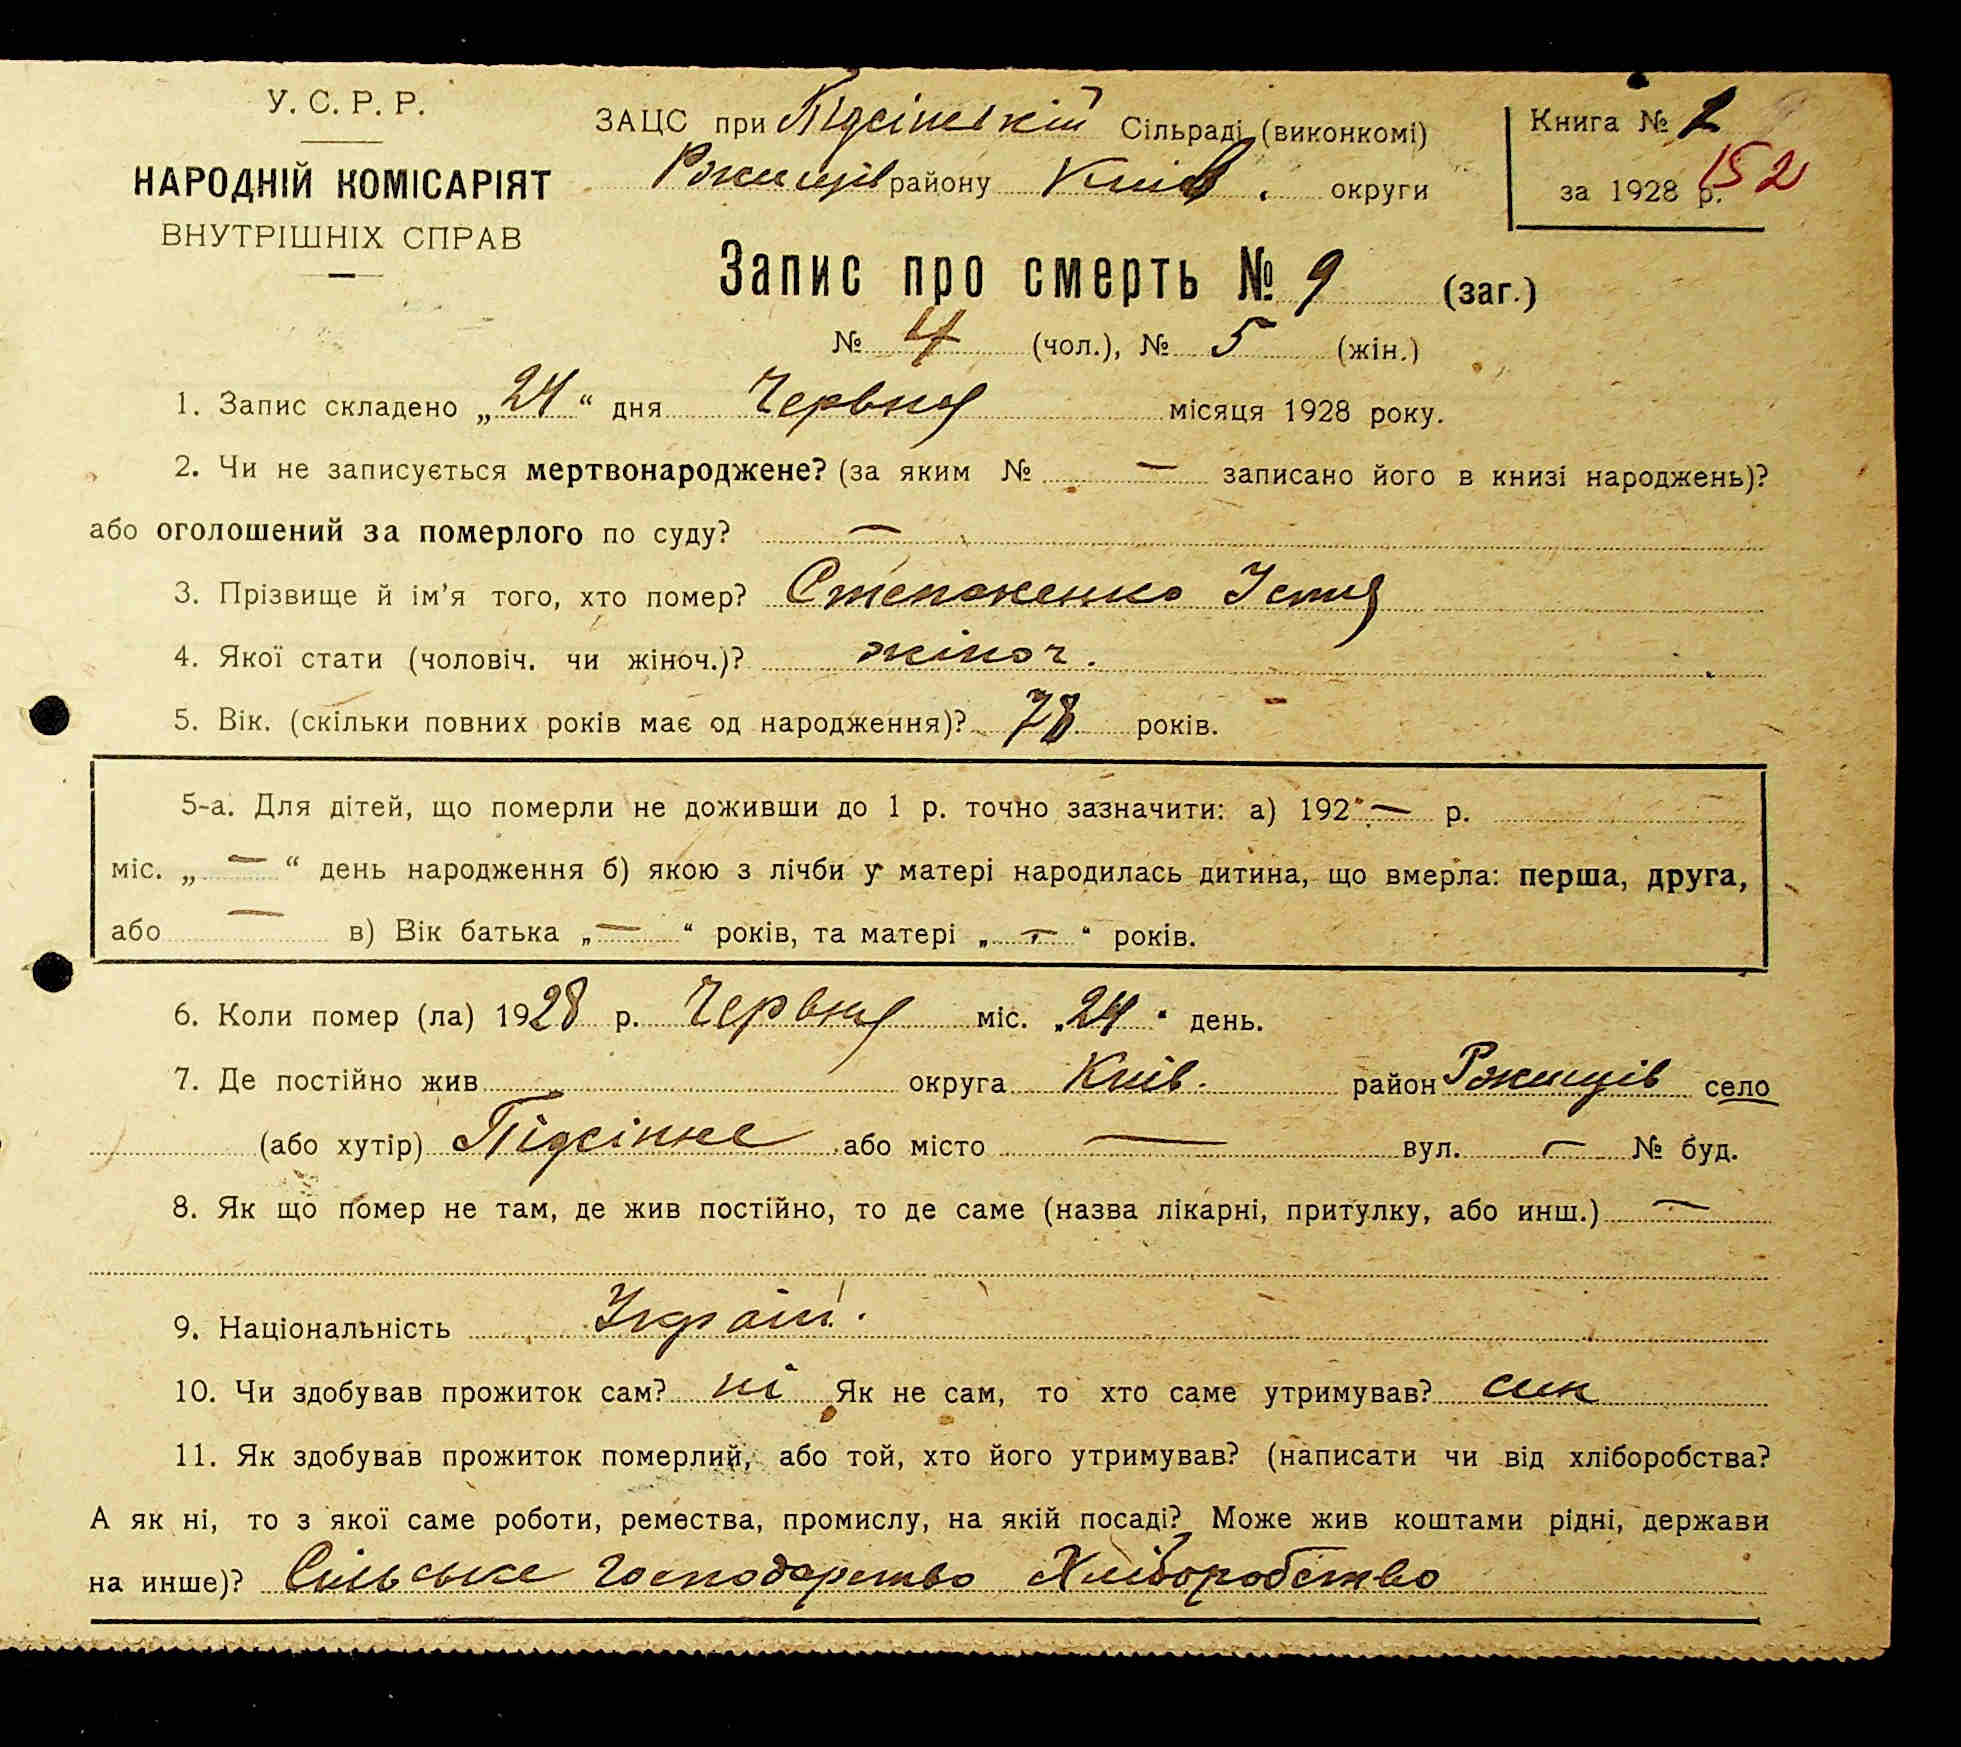 У. С. Р. Р.
НАРОДНІЙ КОМІСАРІЯТ
ВНУТРІШНІХ СПРАВ
ЗАЦС при Підсінській Сільраді (виконкомі)
Ржищів району Київ. округи
Книга № 2
за 1928 р. 152
Запис про смерть № 9 (заг.)
№ 4 (чол.), № 5 (жін.)
1. Запис складено „24“ дня Червня місяця 1928 року.
2. Чи не записується мертвонароджене? (за яким № — записано його в книзі народжень)?
або оголошений за померлого по суду? —
3. Прізвище й ім'я того, хто помер? Степаненко Устя
4. Якої стати (чоловіч. чи жіноч.)? жіноч.
5. Вік. (скільки повних років має од народження)? 78 років.
5-а. Для дітей, що померли не доживши до 1 р. точно зазначити: а) 192 — р.
міс. „ — “ день народження б) якою з лічби у матері народилась дитина, що вмерла: перша, друга,
або — в) Вік батька „ — “ років, та матері „ — “ років.
6. Коли помер (ла) 1928 р. Червня міс. „24“ день.
7. Де постійно жив округа Київ. район Ржищів село
(або хутір) Підсінне або місто — вул. — № буд.
8. Як що помер не там, де жив постійно, то де саме (назва лікарні, притулку, або инш.) —
9. Національність Україн.
10. Чи здобував прожиток сам? ні Як не сам, то хто саме утримував? син
11. Як здобував прожиток померлий, або той, хто його утримував? (написати чи від хліборобства?
А як ні, то з якої саме роботи, ремества, промислу, на якій посаді? Може жив коштами рідні, держави
на инше)? Сільське господарство Хліборобство